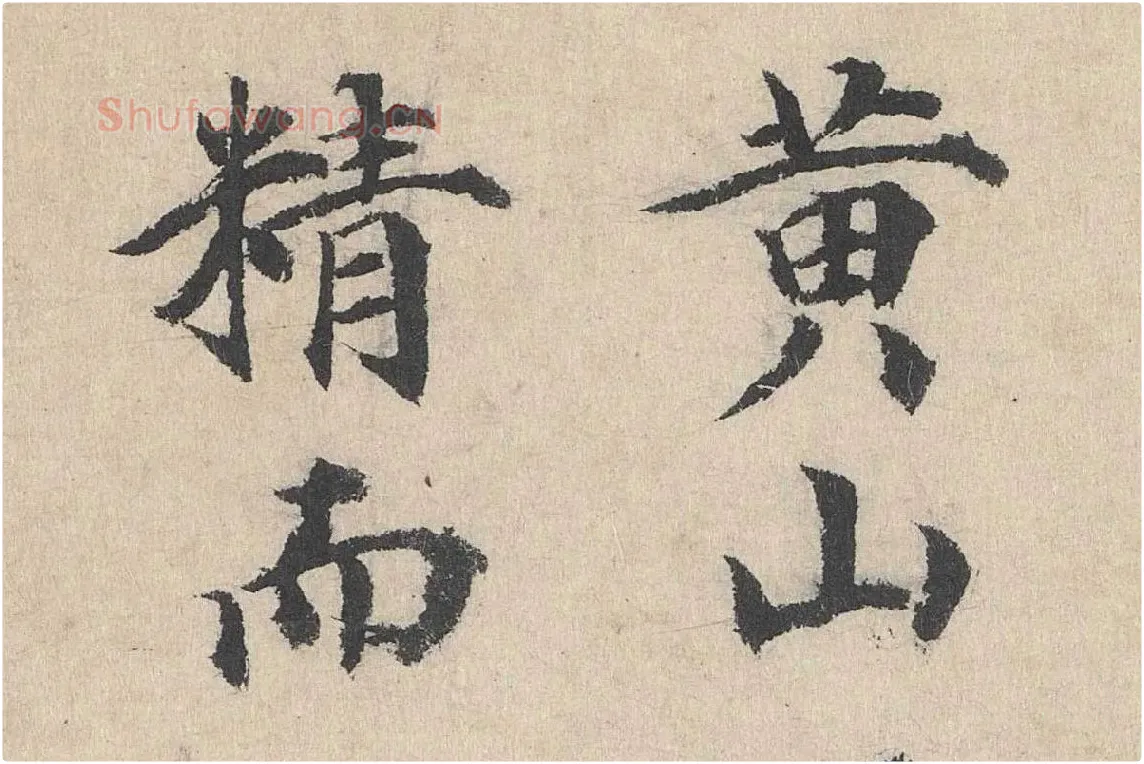 黄山
精而
Shufawang.CN